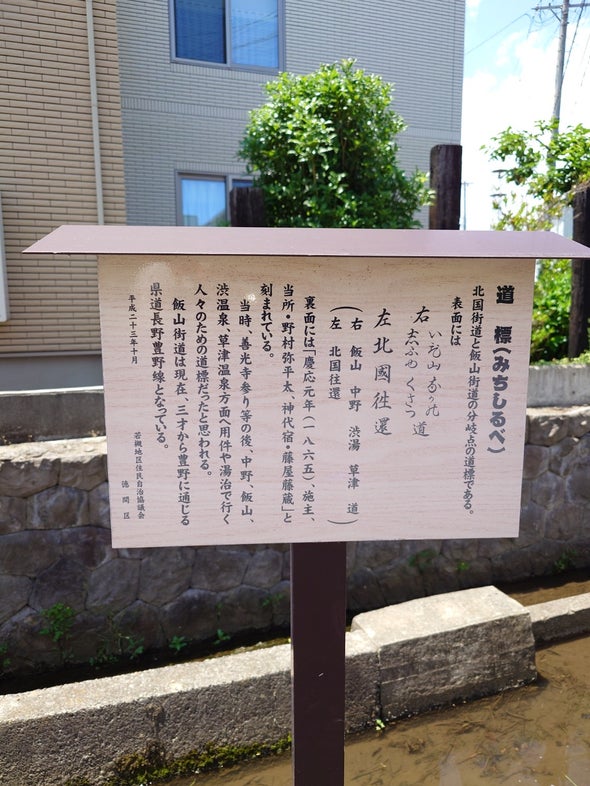 道 標(みちしるべ)
北国街道と飯山街道の分岐点の道標である。
表面には
右 いゐ山 なかの
志ふゆ くさつ 道
左北國徃還
(右 飯山 中野 渋湯 草津 道)
(左 北国往還)
裏面には「慶応元年(一八六五)、施主、
当所・野村弥平太、神代宿・藤屋藤蔵」と
刻まれている。
当時、善光寺参り等の後、中野、飯山、
渋温泉、草津温泉方面へ用件や湯治で行く
人々のための道標だったと思われる。
飯山街道は現在、三才から豊野に通じる
県道長野豊野線となっている。
平成二十三年十月
若槻地区住民自治協議会
徳間区